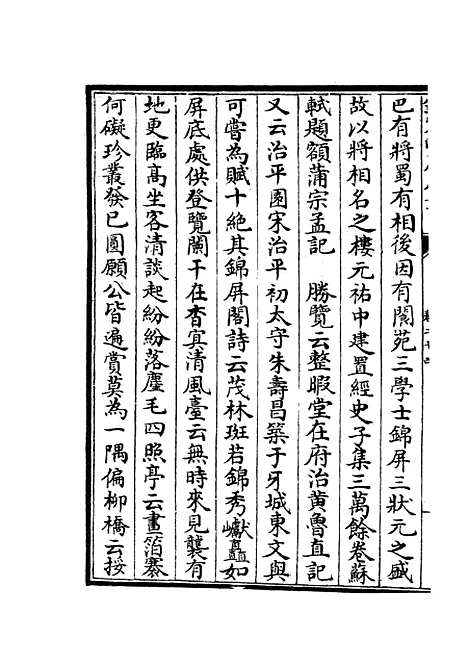 巴有將蜀有相後因有閬苑三學士錦屏三狀元之盛
故以將相名之樓元祐中建置經史子集三萬餘卷蘇
軾題額蒲宗孟記　勝覽云整暇堂在府治黄魯直記
又云治平園宋治平初太守朱壽昌築于牙城東文與
可嘗為賦十絶其錦屏閣詩云茂林斑若錦秀巘矗如
屏底處供登覽闌干在杳㝠清風臺云無時來見襲有
地更臨髙坐客清談起紛紛落麈毛四照亭云畫箔褰
何礙珍叢發已圓願公皆遍賞莫為一隅偏柳橋云挼